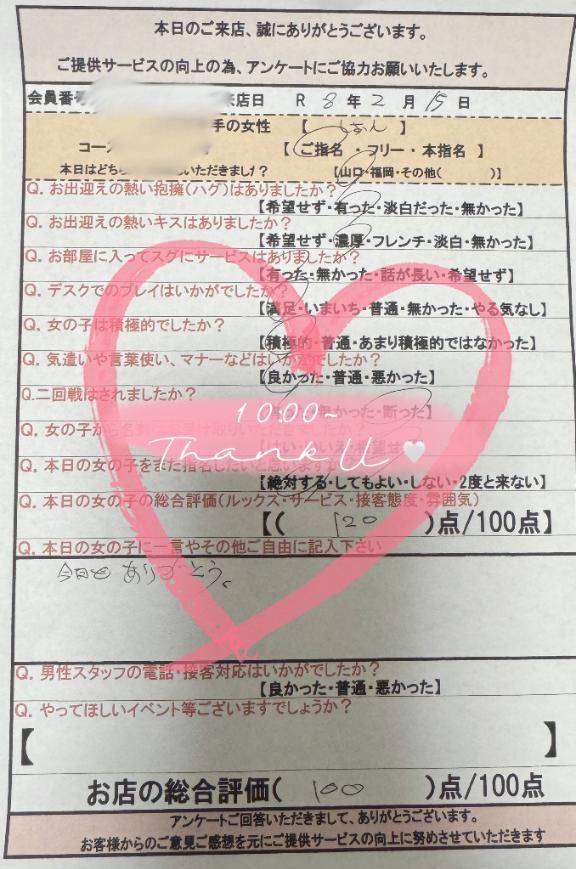 本日のご来店、誠にありがとうございます。
ご提供サービスの向上の為、アンケートにご協力お願いいたします。
会員番号 来店日 R 8 年 2 月 15 日
手の女性 【 】
コース 【 ご指名 ・ フリー ・ 本指名 】
本日はどちら いただきました? 【山口・福岡・その他( )】
Q. お出迎えの熱い抱擁(ハグ)はありましたか?
【希望せず・有った・淡白だった・無かった】
Q. お出迎えの熱いキスはありましたか?
【希望せず・濃厚・フレンチ・淡白・無かった】
Q. お部屋に入ってスグにサービスはありましたか?
【有った・無かった・話が長い・希望せず】
Q. デスクでのプレイはいかがでしたか?
【満足・いまいち・普通・無かった・やる気なし】
Q. 女の子は積極的でしたか?
【積極的・普通・あまり積極的ではなかった】
Q. 気遣いや言葉使い、マナーなどはいかがでしたか?
【良かった・普通・悪かった】
Q.二回戦はされましたか?
無かった・断った】
10:00~
Q. 女の子から
Thank U
Q. 本日の女の子をまた指名したいと思いますか
【絶対する・してもよい・しない・2度と来ない】
Q. 本日の女の子の総合評価(ルックス・サービス・接客態度・雰囲気)
【( 120 )点/100点】
Q. 本日の女の子に一言やその他ご自由に記入下さい
今日も ありがとう。
Q. 男性スタッフの電話・接客対応はいかがでしたか?
【良かった・普通・悪かった】
Q. やってほしいイベント等ございますでしょうか?
【 】
お店の総合評価( 100 )点/100点
アンケートご回答いただきまして、ありがとうございます。
お客様からのご意見ご感想を元にご提供サービスの向上に努めさせていただきます